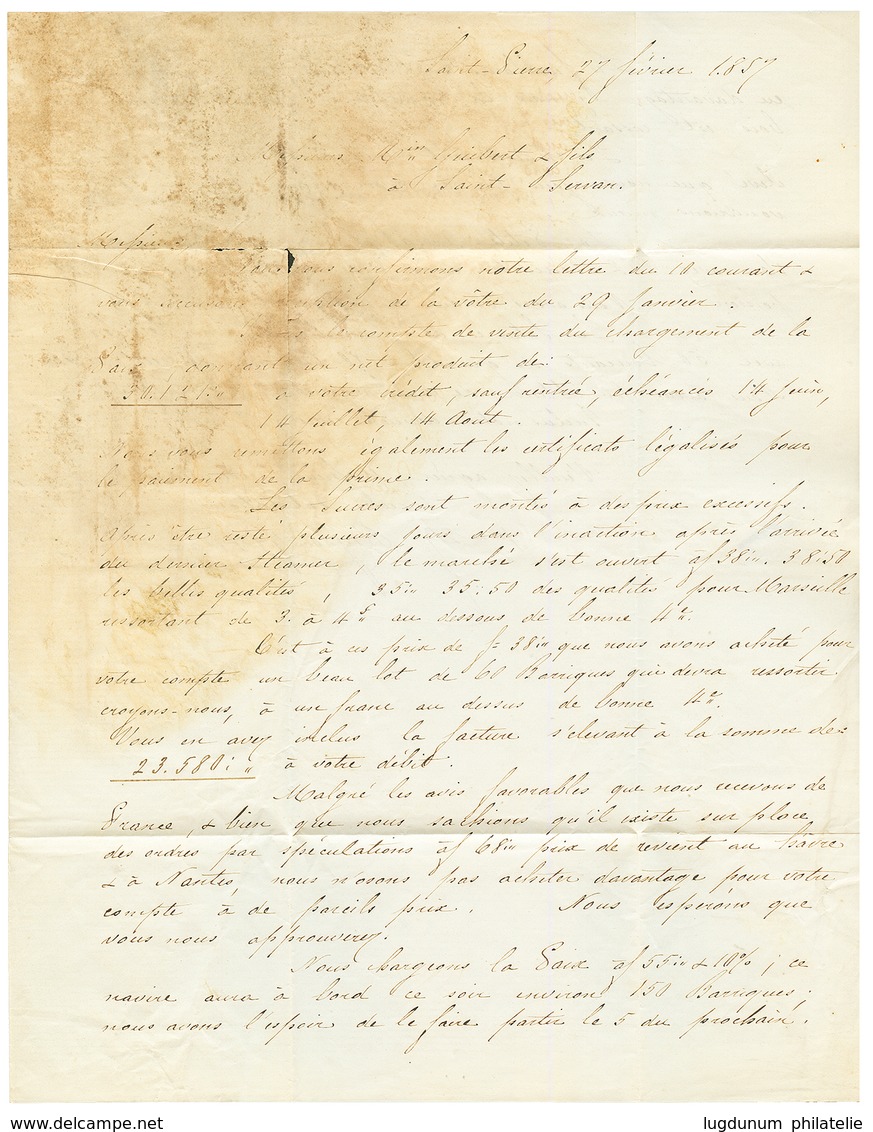 Saint-Pierre, 27 février 1857
Messieurs Min Guibert & fils
à Saint-Servan.
Messieurs
Nous vous confirmons notre lettre du 10 courant &
vous accusons réception de la vôtre du 29 Janvier.
le compte de vente du chargement de la
Paix donnant un net produit de:
30.121:„ à votre crédit, sauf rentrée, échéances 14 Juin,
14 Juillet, 14 Aout.
Nous vous remettons également les certificats légalisés pour
le paiement de la prime.
Les Sucres sont montés à des prix excessifs.
Après être resté plusieurs jours dans l'inaction après l'arrivée
du dernier Steamer, le marché s'est ouvert à f 38:„. 38:50
les belles qualités, 35:„ 35:50 des qualités pour Marseille
ressortant de 3. à 4 f„ au dessous de bonne 4e.
C'est à ces prix de f= 38:„ que nous avons acheté pour
votre compte un beau lot de 60 Barriques qui devra ressortir
croyons-nous, à un franc au dessus de bonne 4e.
Vous en avez inclus la facture s'élevant à la somme de:
23.580:„ à votre débit.
Malgré les avis favorables que nous recevons de
France, & bien que nous sachions qu'il existe sur place
des ordres par spéculations à f 68:„ prix de revient au hâvre
& à Nantes, nous n'osons pas acheter davantage pour votre
compte à de pareils prix. Nous espérons que
vous nous approuverez.
Nous chargeons la Paix à f 55:„ & 10%; ce
navire aura à bord ce soir environ 150 Barriques;
nous avons l'espoir de le faire partir le 5 du prochain.
www.delcampe.net
lugdunum philatelie